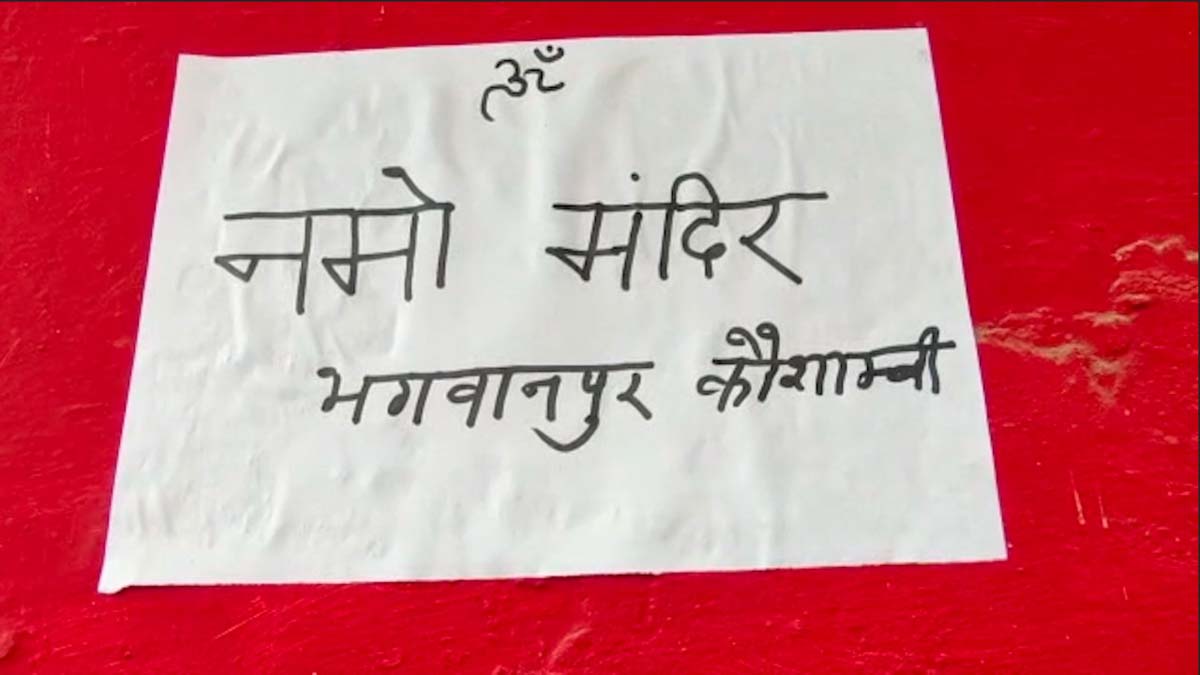 ॐ
नमो मंदिर
भगवानपुर कौशाम्बी